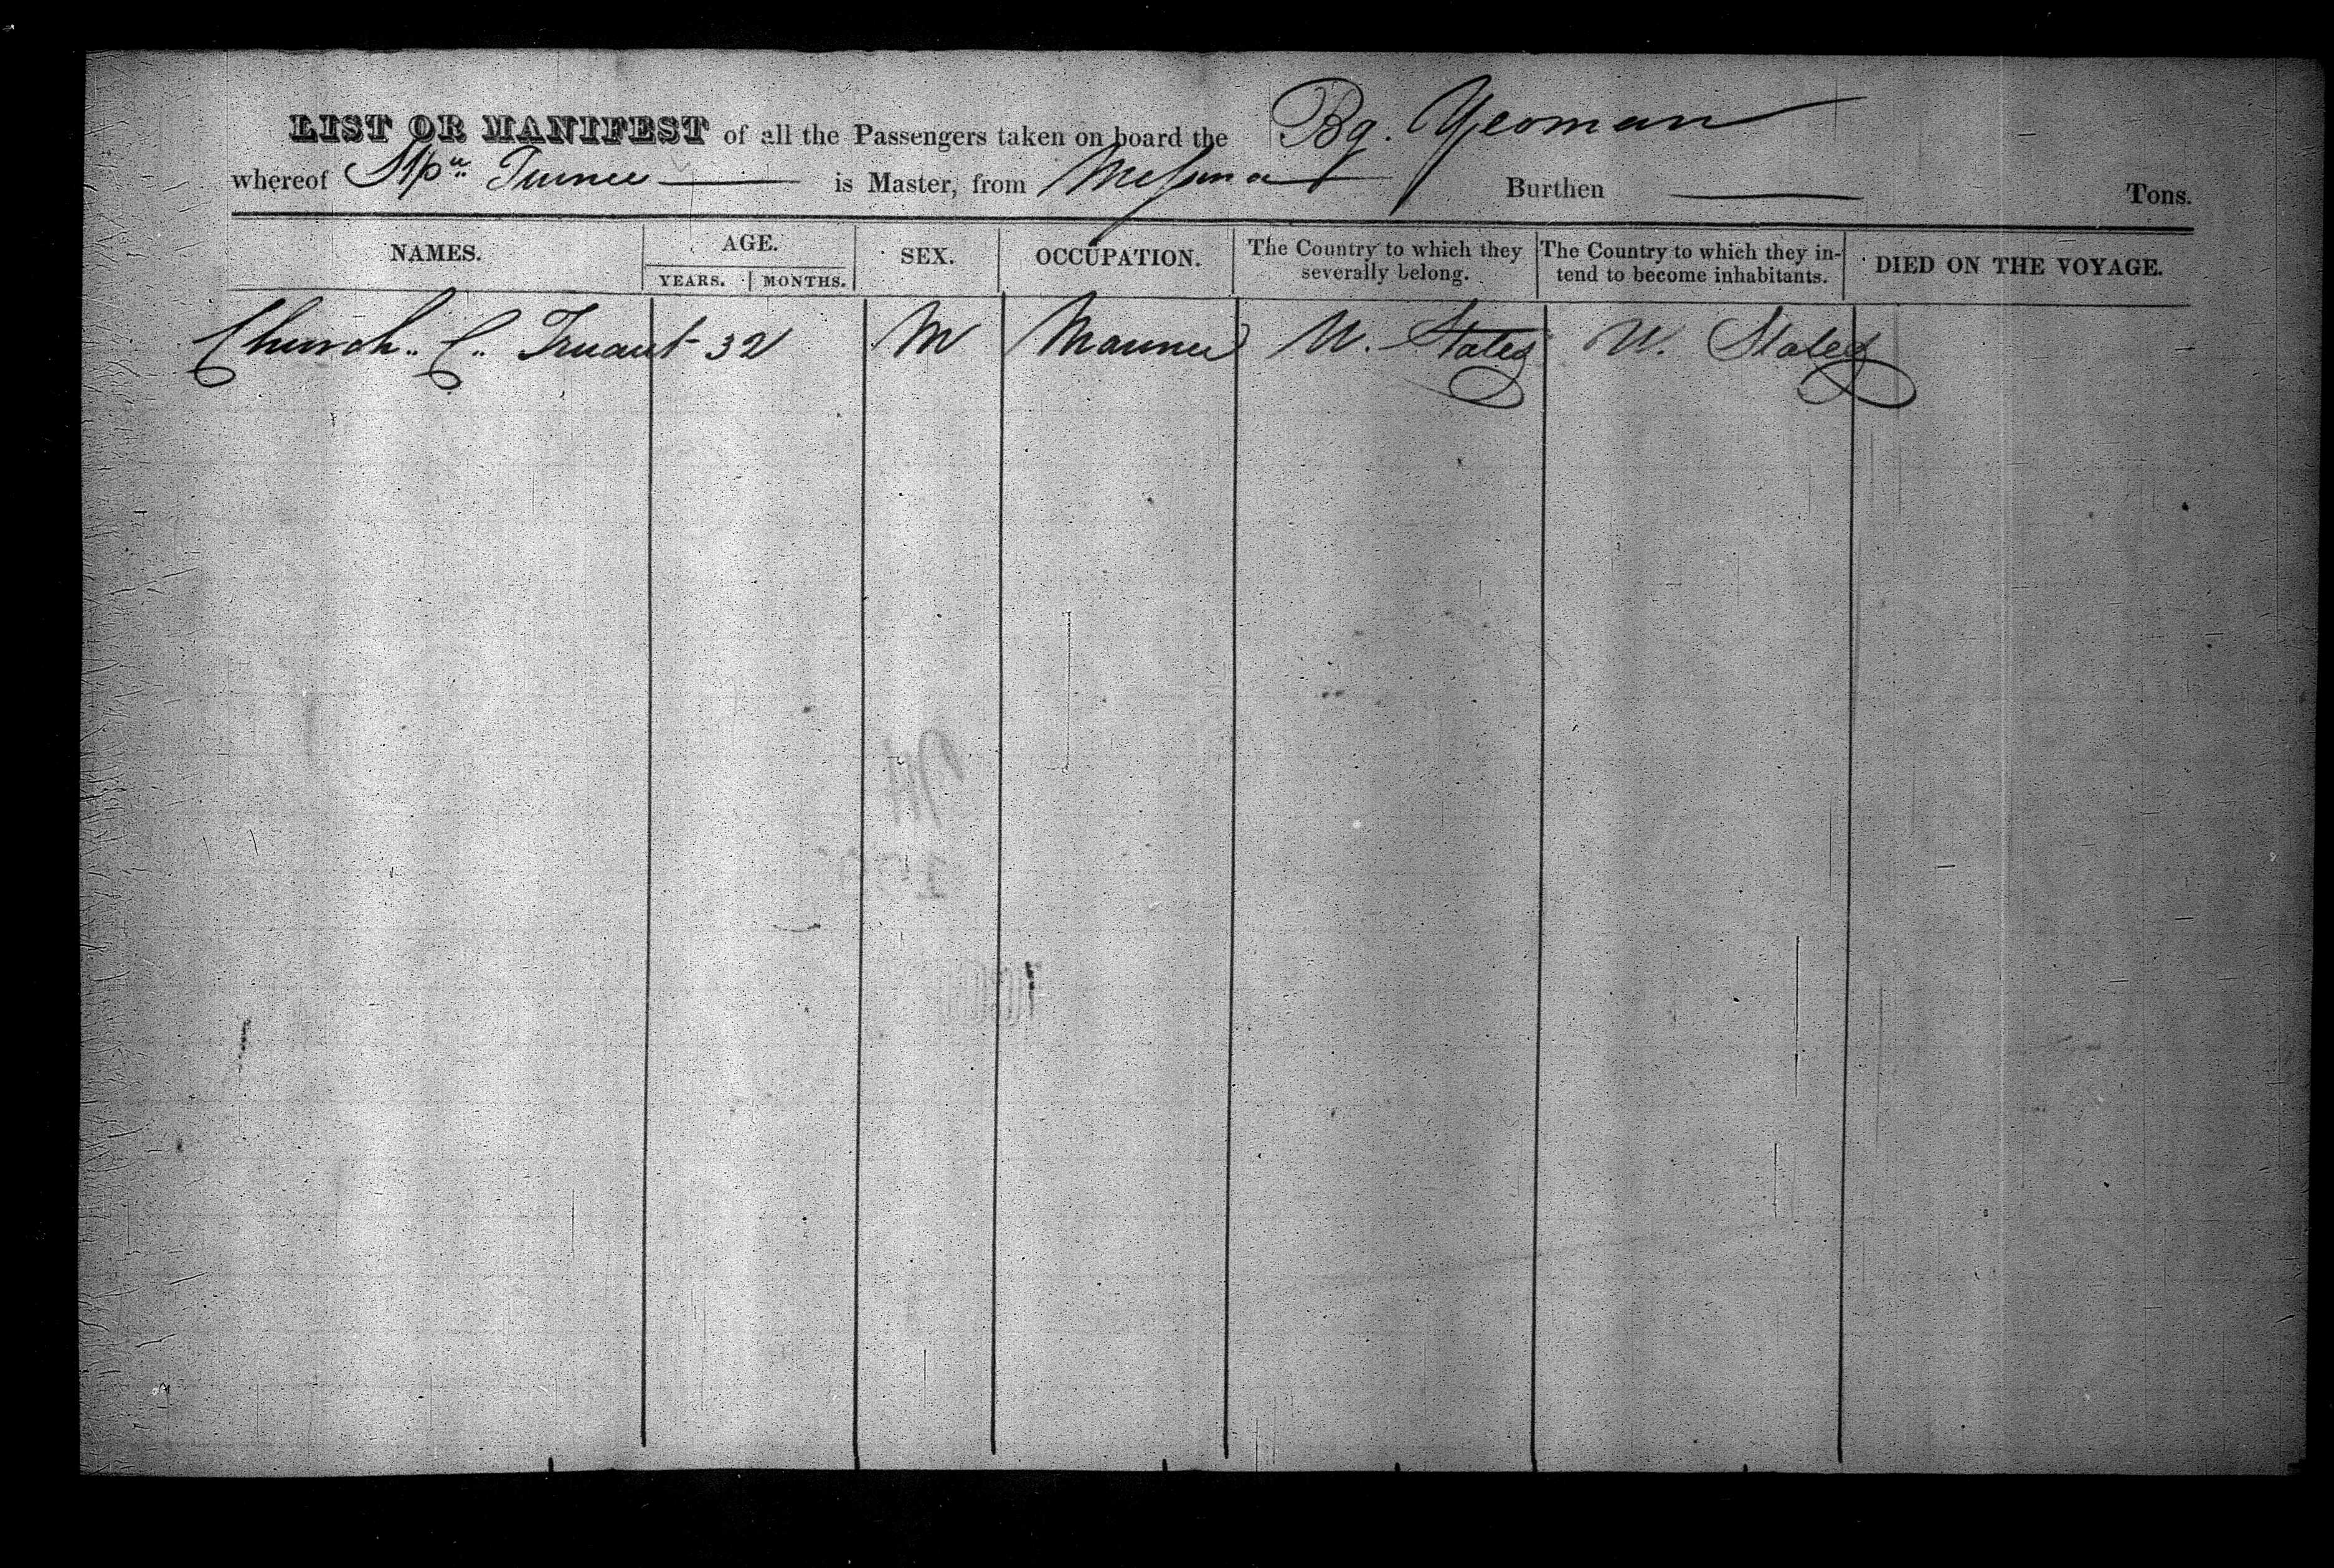 LIST OR MANIFEST of all the Passengers taken on board the Bg. Yeoman
whereof is Master, from Messina Burthen Tons.
NAMES. AGE. SEX. OCCUPATION. The Country to which they severally belong. The Country to which they intend to become inhabitants. DIED ON THE VOYAGE.
YEARS. MONTHS.
Church.. C.. Truant 32 M Mariner U. States U. States